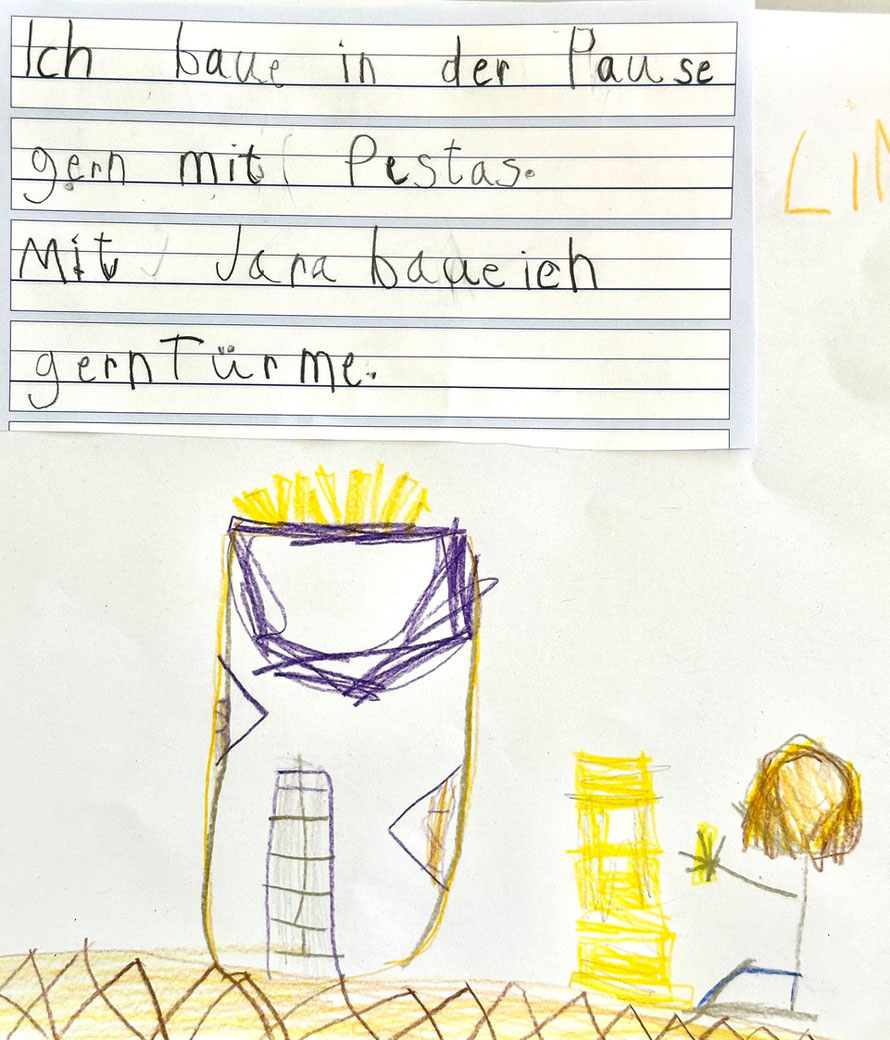 Ich baue in der Pause
gern mit Pestas.
Mit Jara baue ich
gern Türme.